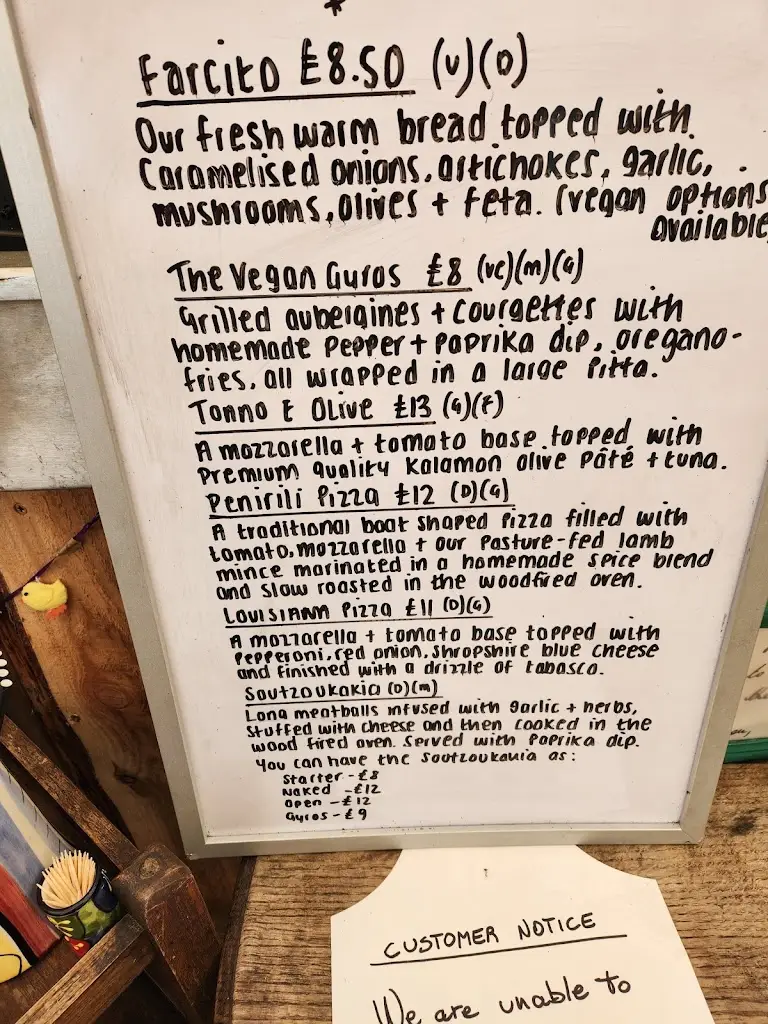 *
Farcito £8.50 (V)(D)
Our fresh warm bread topped with
Caramelised onions, artichokes, garlic,
mushrooms, olives + feta. (vegan options
available
The Vegan Gyros £8 (VE)(M)(G)
Grilled aubergines + courgettes with
homemade pepper + paprika dip, oregano-
fries, all wrapped in a large pitta.
Tonno & Olive £13 (G)(F)
A mozzarella + tomato base topped with
premium quality Kalamon olive pâté + tuna.
Penirili Pizza £12 (D)(G)
A traditional boat shaped pizza filled with
tomato, mozzarella + our pasture-fed lamb
mince marinated in a homemade spice blend
and slow roasted in the woodfired oven.
Louisiana Pizza £11 (D)(G)
A mozzarella + tomato base topped with
pepperoni, red onion, Shropshire blue cheese
and finished with a drizzle of tabasco.
Soutzoukakia (D)(M)
Long meatballs infused with garlic + herbs,
stuffed with cheese and then cooked in the
wood fired oven. Served with paprika dip.
You can have the Soutzoukakia as:
Starter - £8
Naked - £12
Open - £12
Gyros - £9
CUSTOMER NOTICE
We are unable to